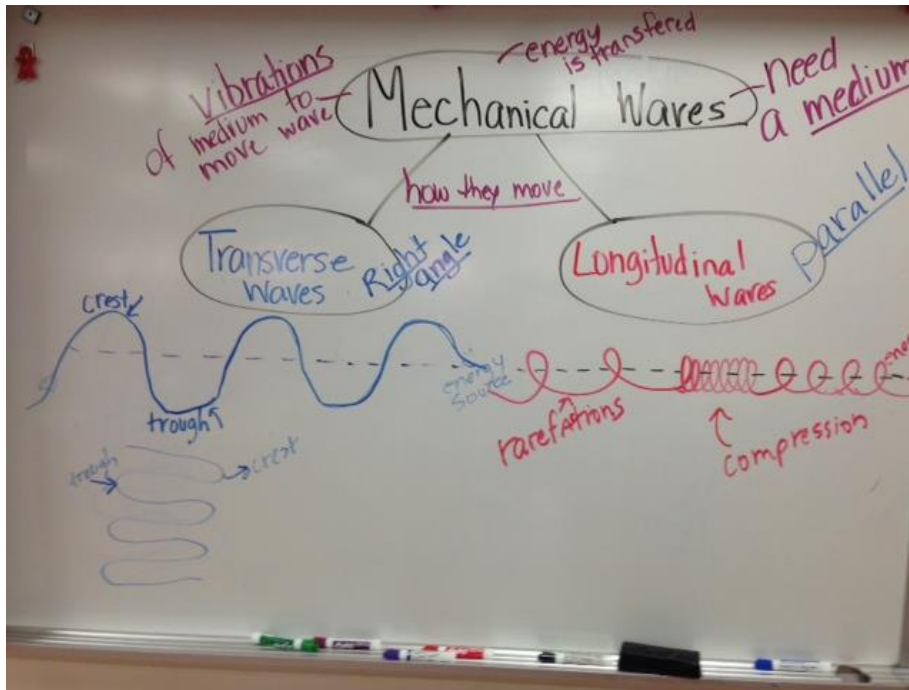 energy
is transferred
Vibrations
of medium to
move wave
Mechanical Waves
need
a medium
how they move
Transverse
Waves
Right
angle
Longitudinal
Waves
parallel
crest
trough
energy
source
rarefAtions
compression
trough
crest